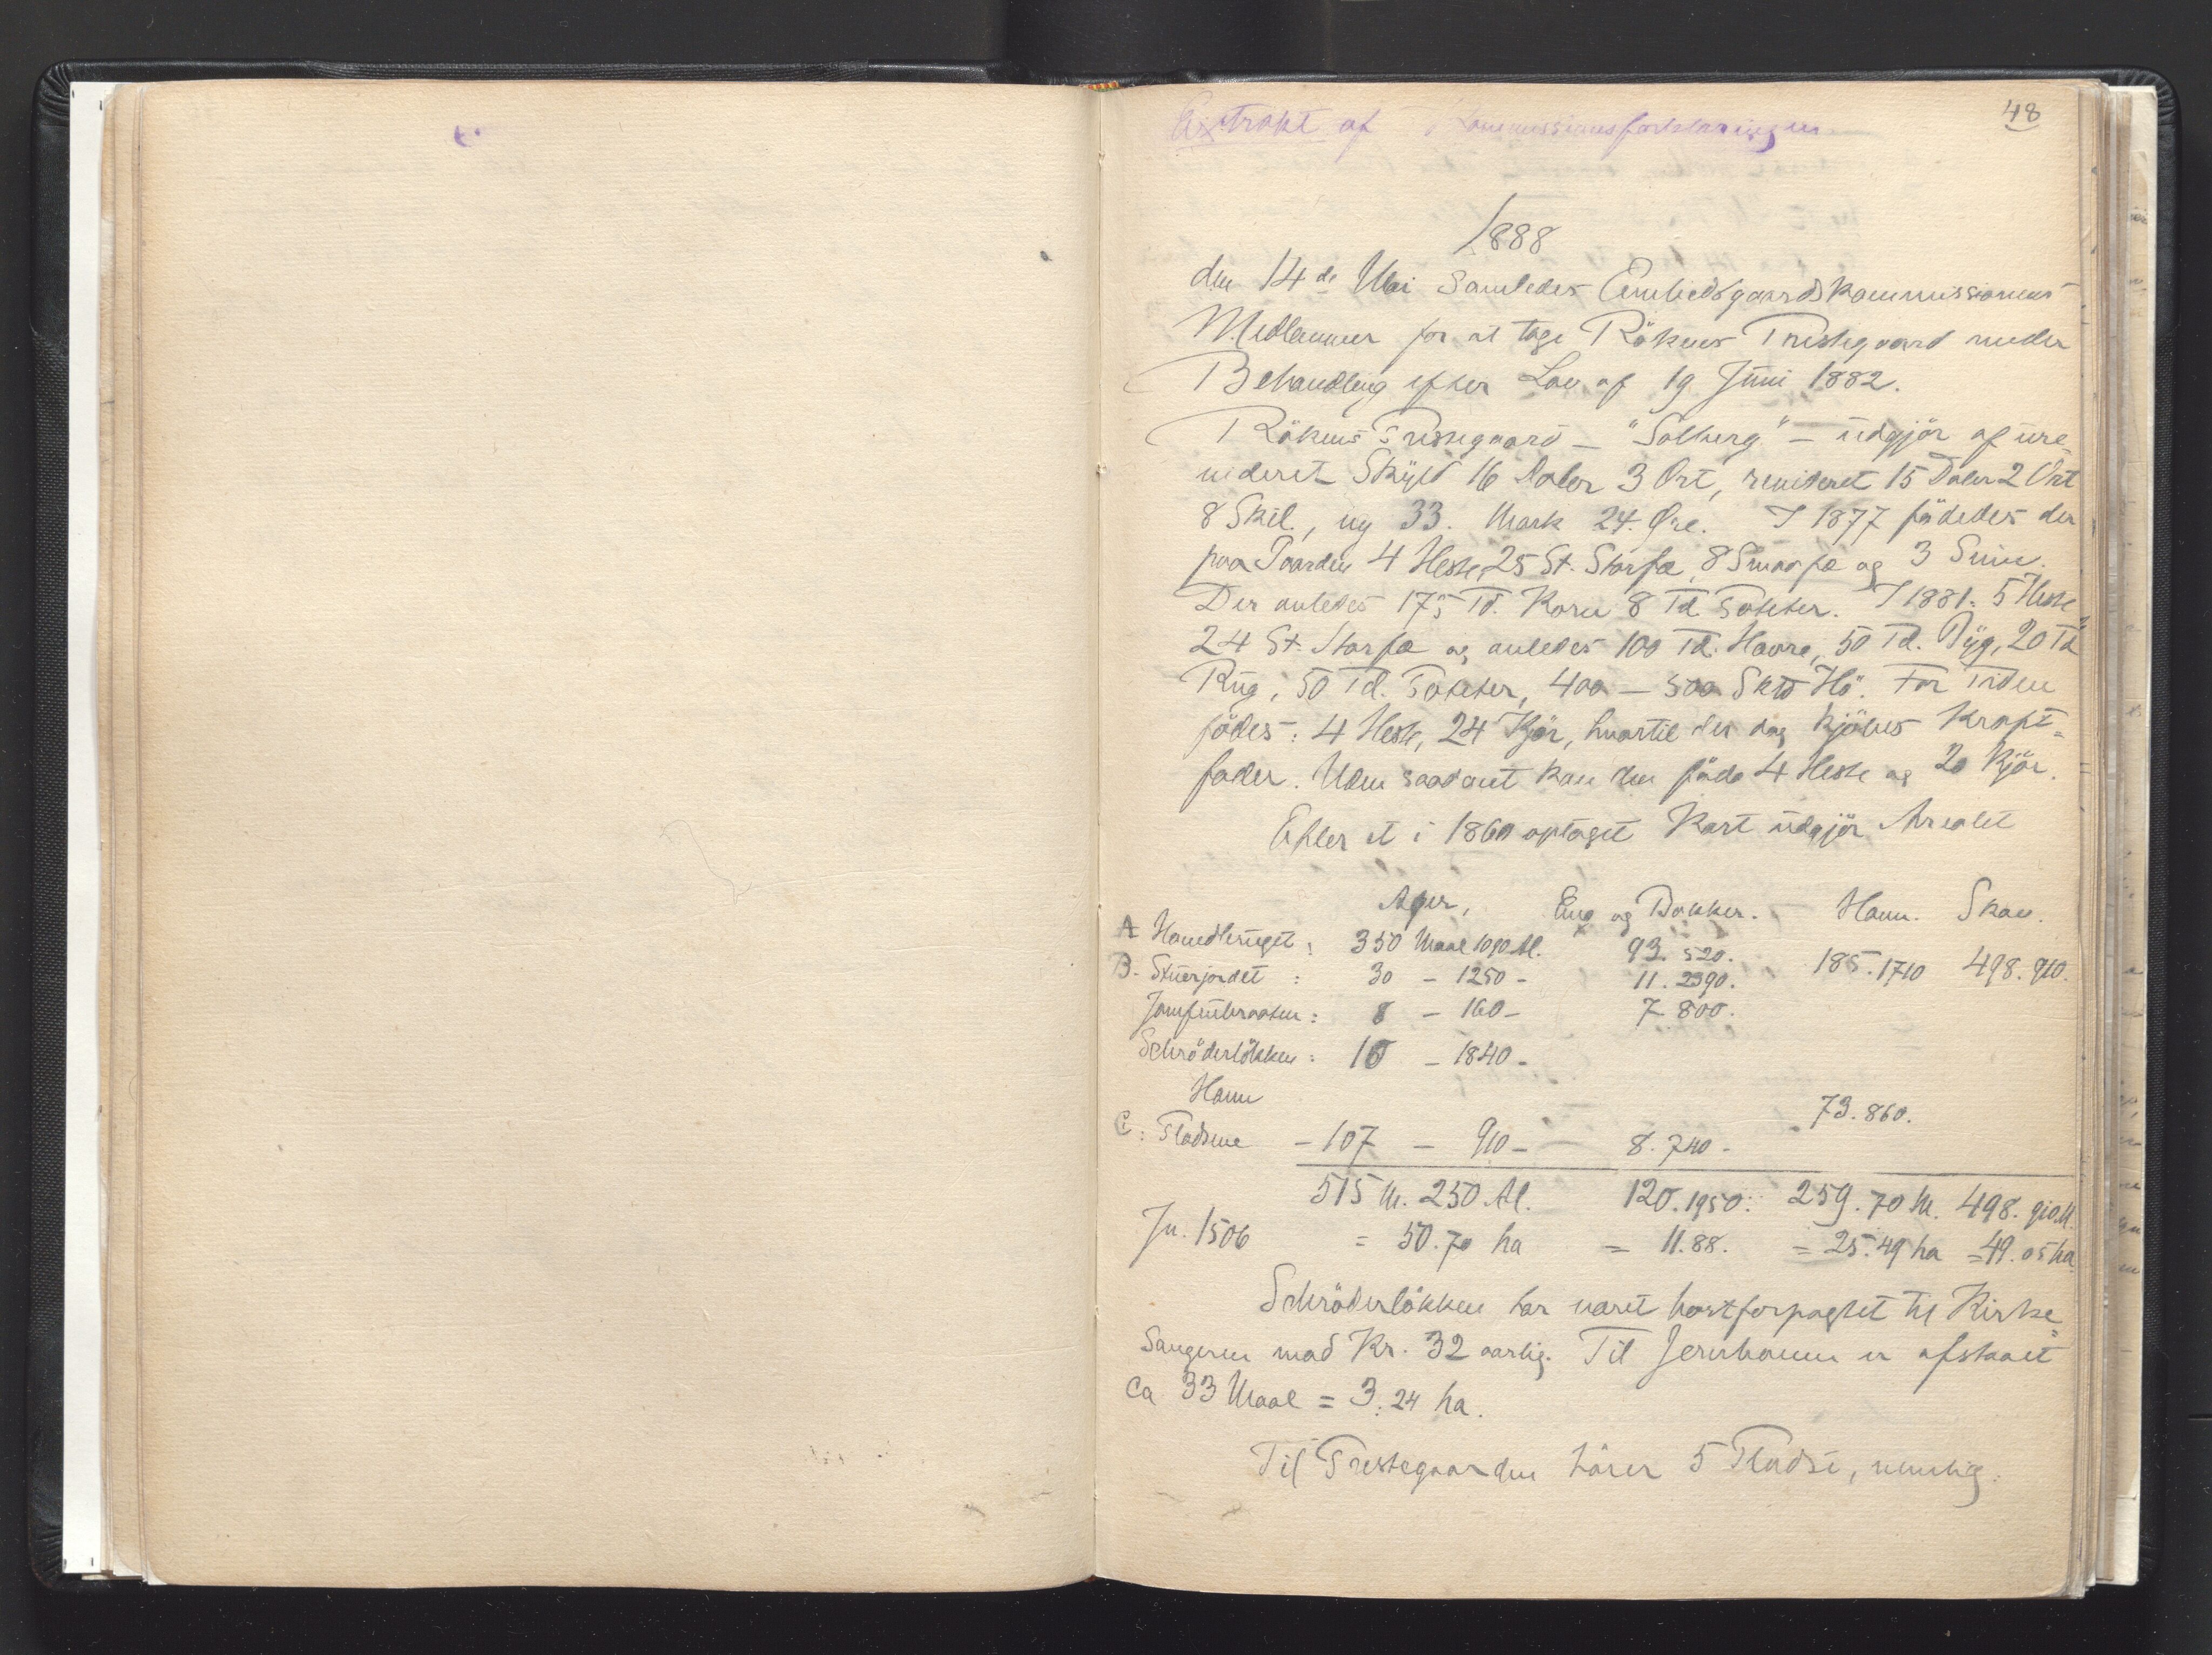 48
Extrakt af Kommissionsforklaringen
1888
den 14de Mai samledes Embedsgaardskommissionens
Medlemmer for at tage Rökens Prestegaard under
Behandling efter Lov af 19 Juni 1882.
Rökens Prestegaard – "Solberg" – udgjör af ure
videret Skyld 16 Daler 3 Ort, revideret 15 Daler 2 Ort
8 Skil., ny 33. Mark 24. Øre. I 1877 födedes der
paa Gaarden 4 Heste, 25 St. Storfæ, 8 Smaafæ og 3 Sviin.
Der avledes 175 Td. Korn 8 Td Poteter. I 1881: 5 Heste
24 St. Storfæ og avledes 100 Td. Havre, 50 Td. Byg, 20 Td
Rug, 50 Td. Poteter, 400 – 500 Sktd Hö. For Tiden
födes: 4 Heste, 24 Kjör, hvortil der dog kjöbes Kraft=
foder. Uden saadant kan der föde 4 Heste og 20 Kjör.
Efter et i 1860 optaget Kart udgjör Arealet
Ager, Eng og Bakker. Havn. Skov.
A Hovedbruget: 350 Maal 1090 Al. 93. 520. 185. 1710 498. 910.
B. Stuerjordet : 30 – 1250 – 11. 2390.
Jomfrubraaten : 8 – 160 – 7 800.
Schröderlökken : 18 – 1840 –
Havn 73. 860.
C: Pladsene – 107 – 910 – 8. 740 –
515 M. 250 Al. 120. 1950. 259. 70 M. 498. 910. Al.
Jn. 1506 = 50.70 ha = 11.88. = 25.49 ha = 49.05 ha
Schröderlökken har været bortforpagtet til Kirke=
sangeren mod Kr. 32 aarlig. Til Jernbanen er afstaaet
ca 33 Maal = 3.24 ha.
Til Prestegaarden hörer 5 Pladse, nemlig: